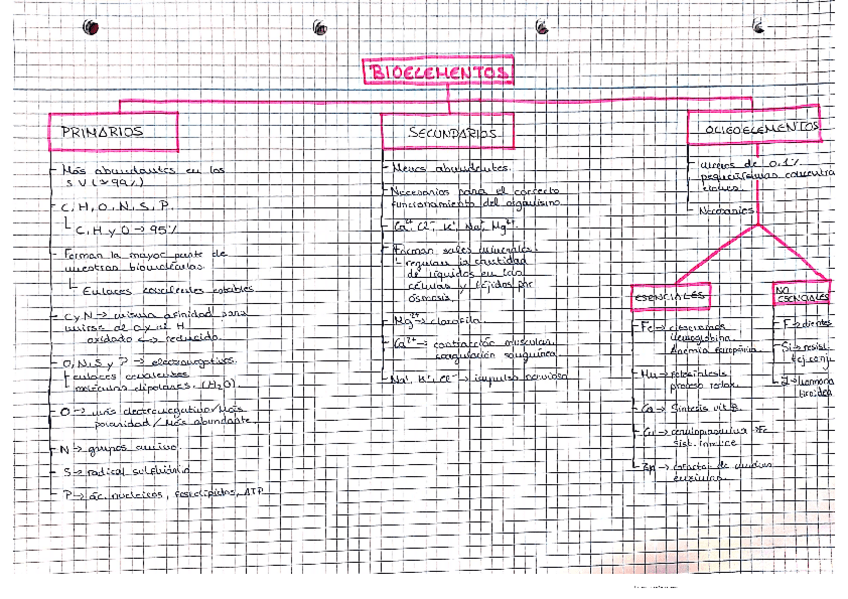 BIOELEMENTOS
PRIMARIOS
- Más abundantes en los
S V (≈99%)
- C, H, O, N, S, P.
C, H y O → 95%
- Forman la mayor parte de
nuestras biomoléculas
Enlaces covalentes estables.
- C y N → misma afinidad para
unirse al O y al H
oxidado ↔ reducido.
- O, N, S y P → electronegativos.
enlaces covalentes
moléculas dipolares. (H₂O).
- O → más electronegativo/Más
polaridad/Más abundante.
- N → grupos amino.
- S → radical sulfhidrilo
- P → ác. nucleicos, fosfolípidos, ATP
SECUNDARIOS
- Menos abundantes.
- Necesarios para el correcto
funcionamiento del organismo.
- Ca²⁺, Cl⁻, K⁺, Na⁺, Mg²⁺
- Forman sales minerales:
- regulan la cantidad
de líquidos en las
células y tejidos por
ósmosis.
- Mg²⁺ → clorofila.
- Ca²⁺ → contracción muscular,
coagulación sanguínea.
- Na⁺, K⁺, Cl⁻ → impulso nervioso
OLIGOELEMENTOS
- menos de 0,1%
pequeñísimas concentra
ciones.
- Necesarios
ESENCIALES
- Fe →
hemoglobina.
Anemia ferropénica.
- Mn → fotosíntesis
proceso redox.
- Co → Síntesis vit B.
- Cu →
sist. inmune
- Zn → cofactor de muchas
enzimas.
NO
ESENCIALES
- F → dientes
- Si → resist.
tej. conju
- I → hormona
tiroidea